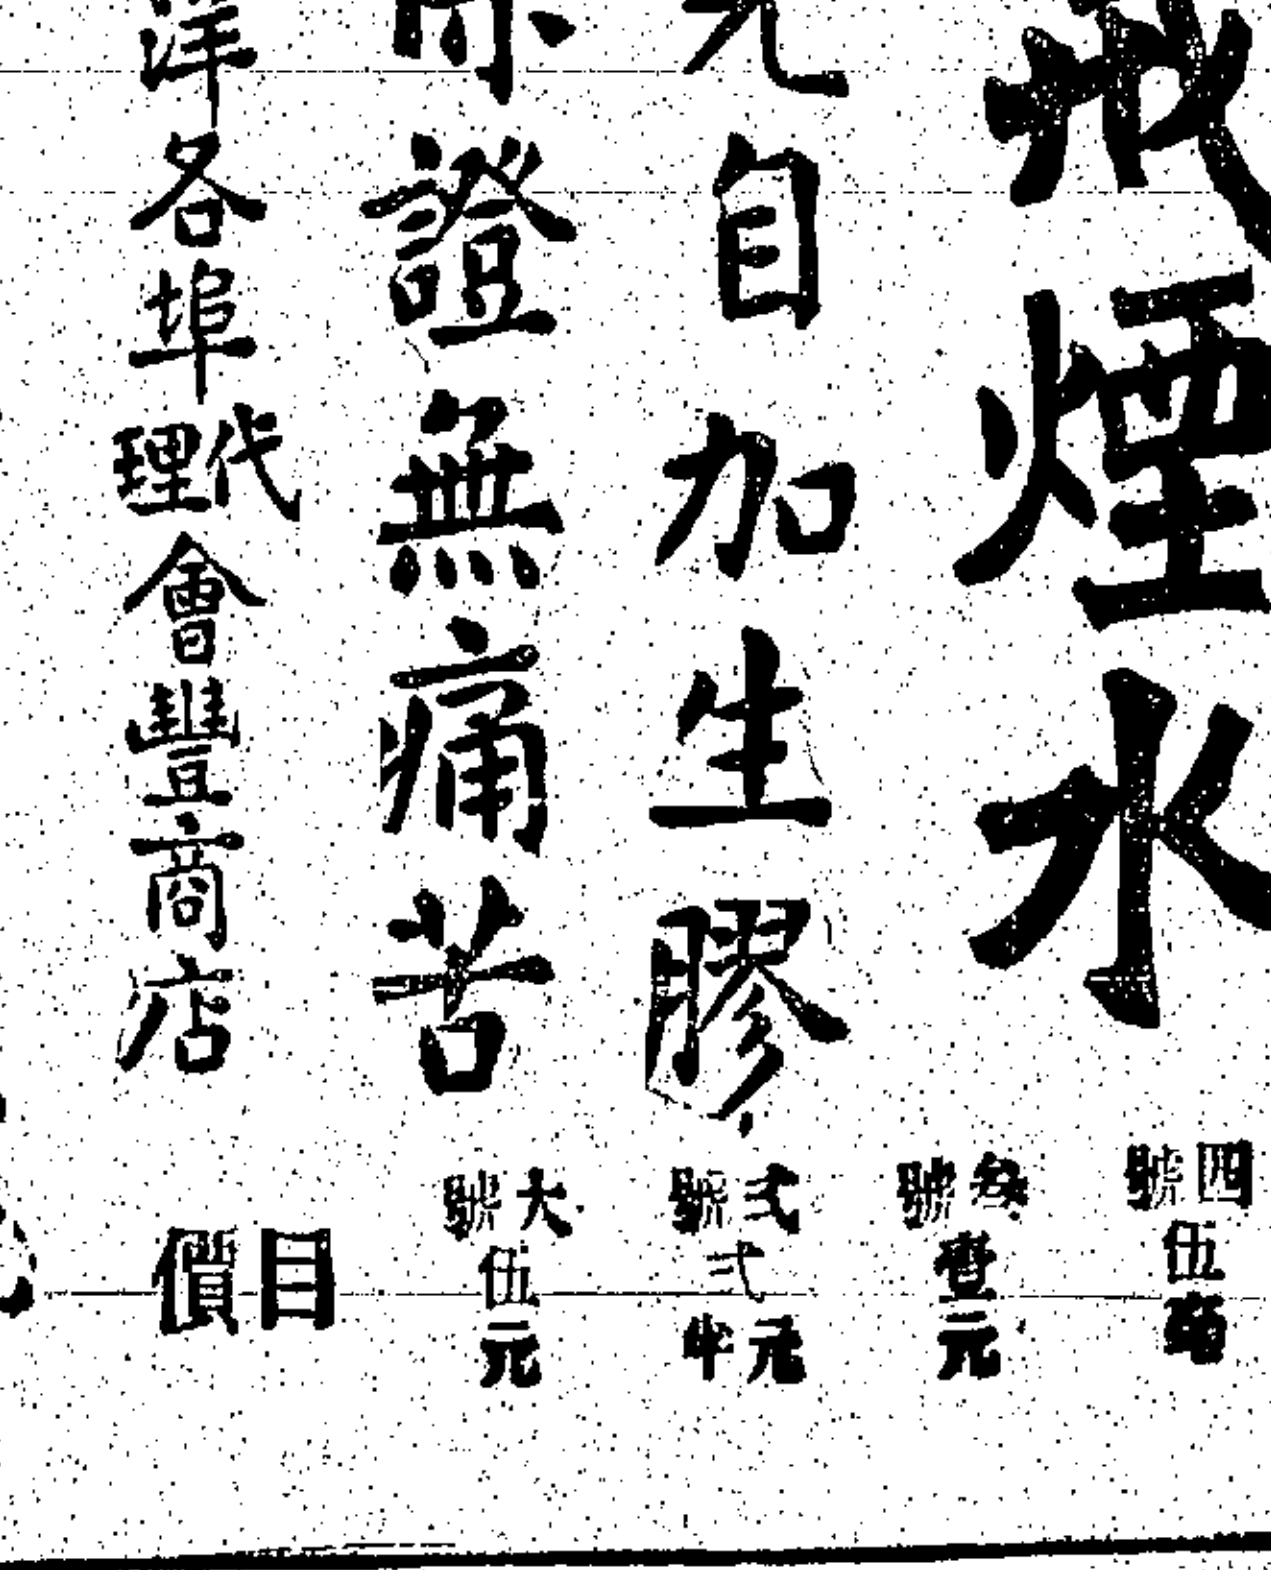 戒煙水
自加生膠
證無痛苦
洋各埠代理會豐商店
四號伍
叁號壹元
弍號弍元半
大號伍元
目價